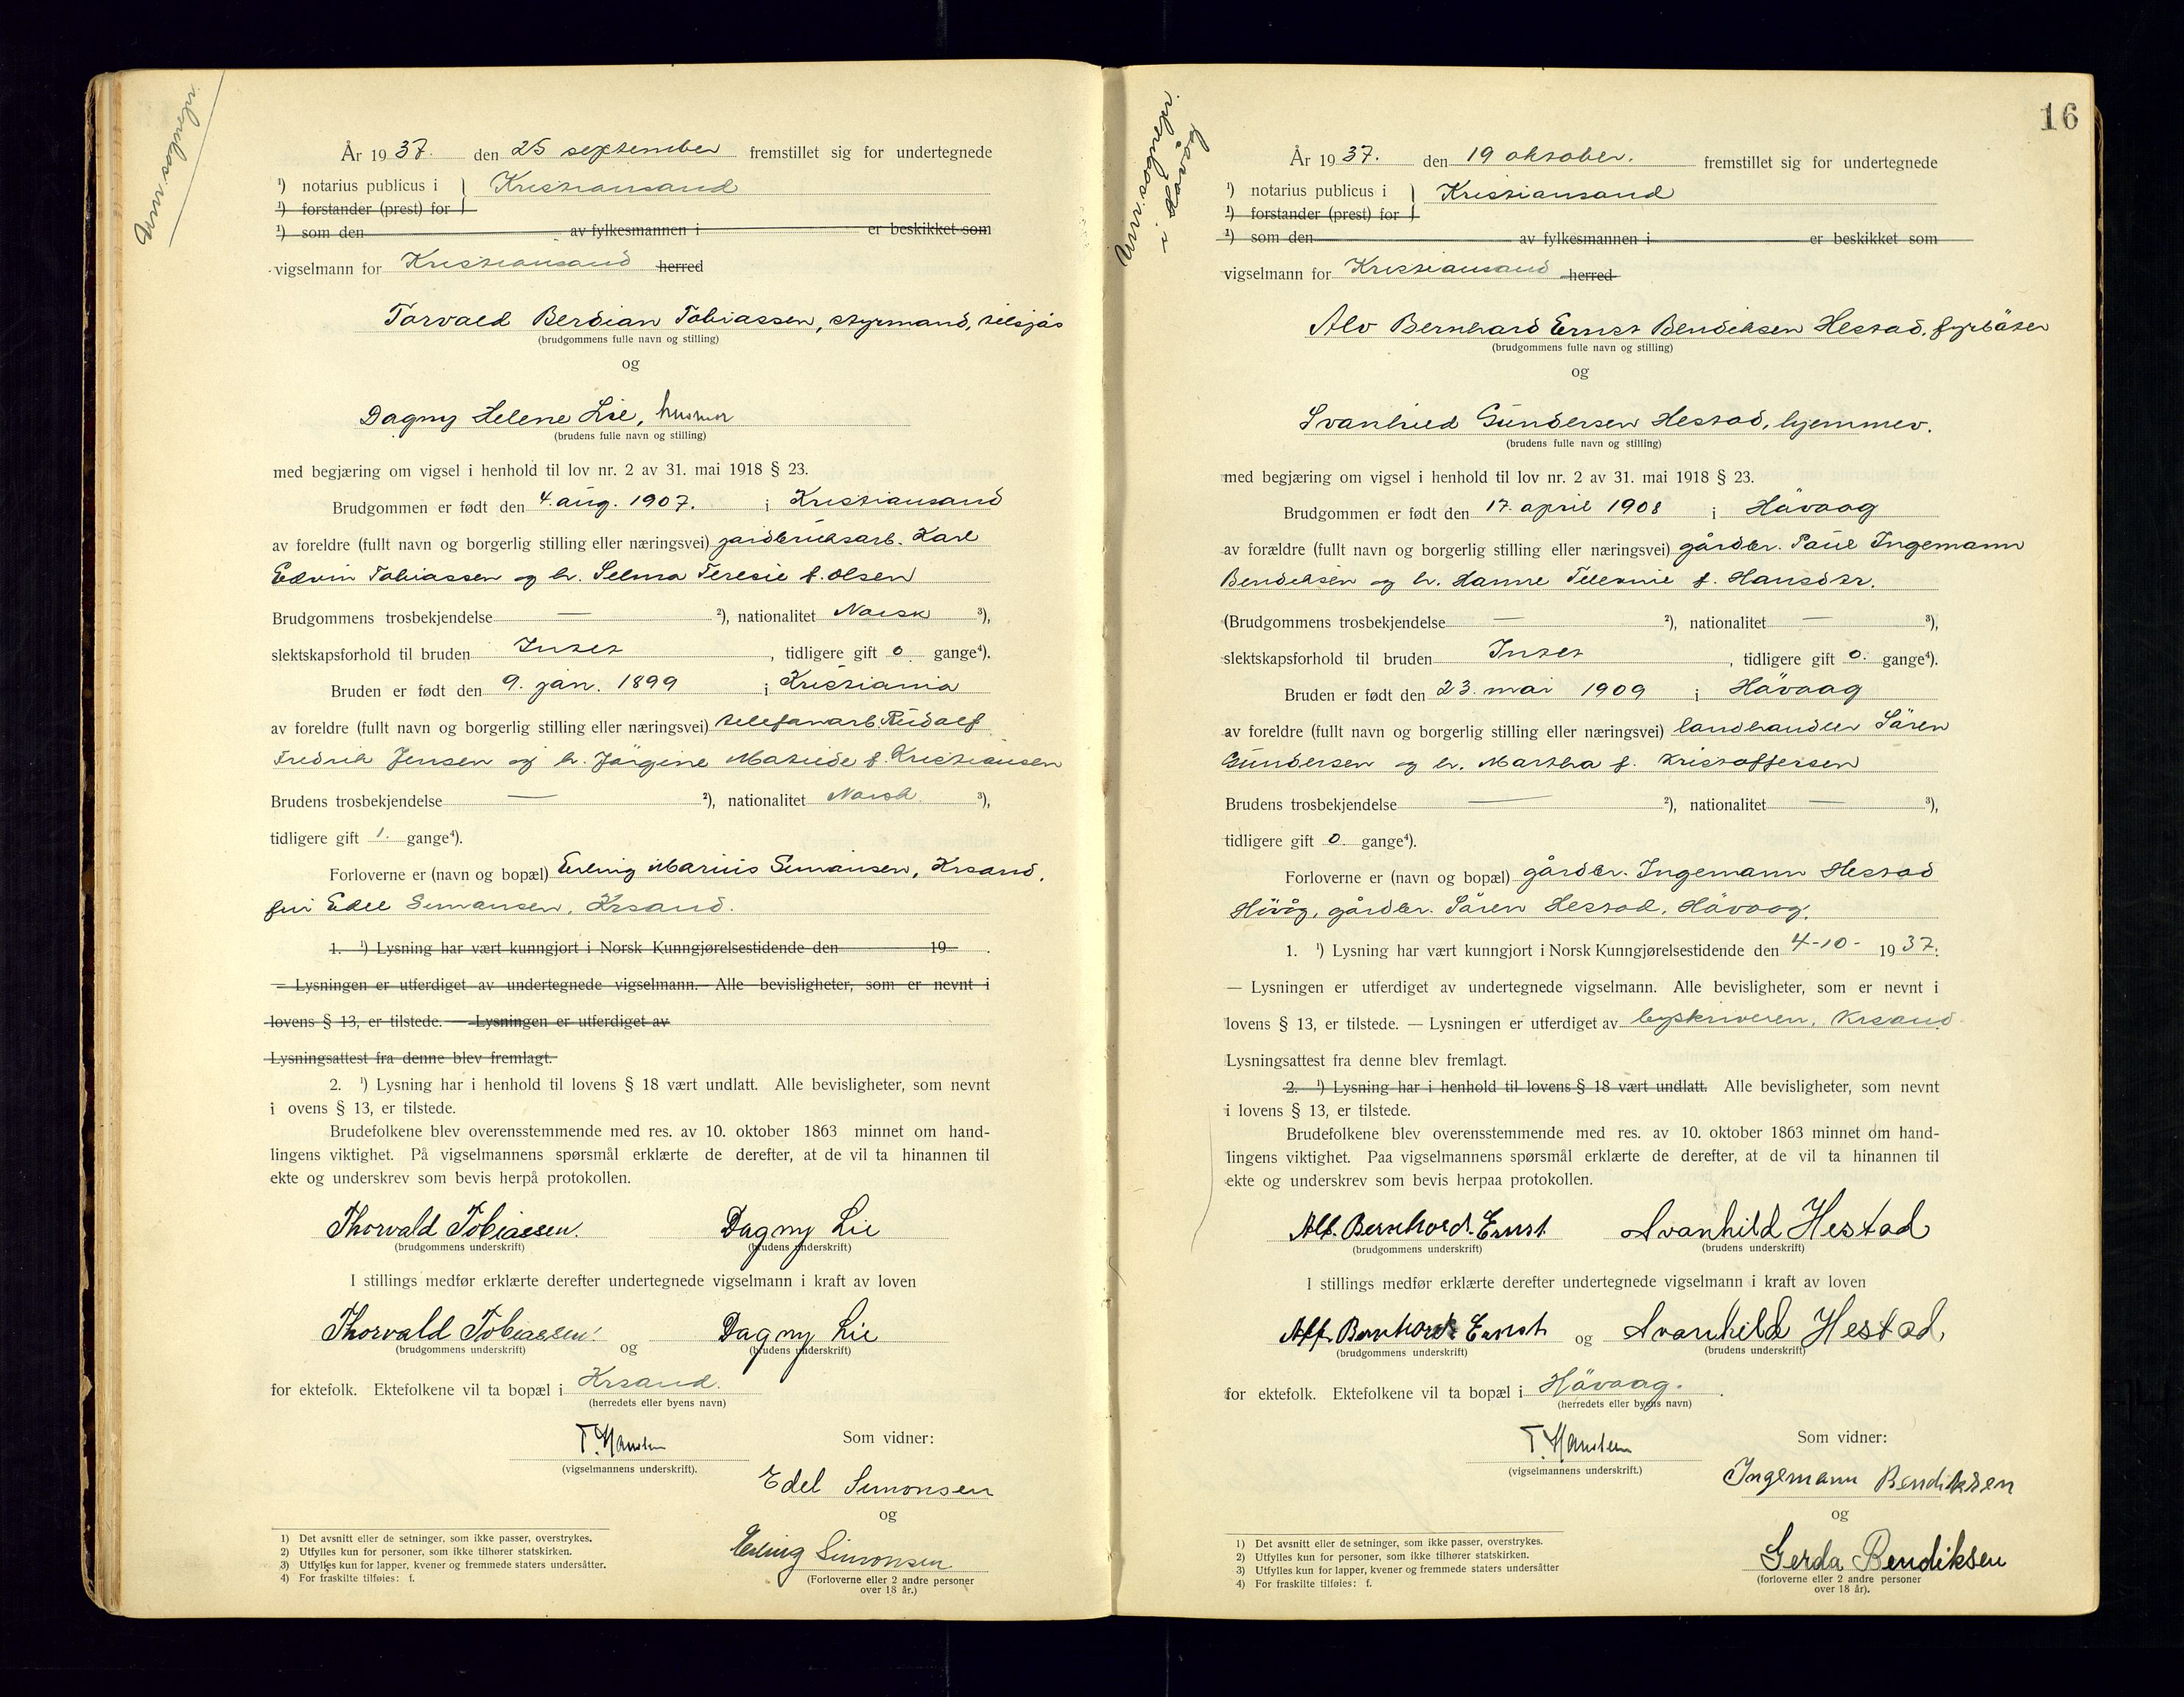 Um. sognepr.
År 1937. den 25 september fremstillet sig for undertegnede
¹) notarius publicus i } Kristiansand
¹) forstander (prest) for
¹) som den av fylkesmannen i er beskikket som
vigselmann for Kristiansand herred
Torvald Berdian Tobiassen, styrmand, tilsjøs
(brudgommens fulle navn og stilling)
og
Dagny Helene Lie, husmor
(brudens fulle navn og stilling)
med begjæring om vigsel i henhold til lov nr. 2 av 31. mai 1918 § 23.
Brudgommen er født den 4. aug. 1907. i Kristiansand
av foreldre (fullt navn og borgerlig stilling eller næringsvei) jordbruksarb. Karl
Edvin Tobiassen og h. Selma Teresie f. Olsen
Brudgommens trosbekjendelse — ²), nationalitet Norsk ³),
slektskapsforhold til bruden Intet, tidligere gift 0 gange⁴).
Bruden er født den 9. jan. 1899 i Kristiania
av foreldre (fullt navn og borgerlig stilling eller næringsvei) telefonarb. Rudolf
Fredrik Jensen og h. Jörgine Matilde f. Kristiansen
Brudens trosbekjendelse — ²), nationalitet Norsk ³),
tidligere gift 1. gange⁴).
Forloverne er (navn og bopæl) Erling Marius Simonsen, Krsand,
fru Edel Simonsen, Krsand.
1. ¹) Lysning har vært kunngjort i Norsk Kunngjørelsestidende den 19 .
— Lysningen er utferdiget av undertegnede vigselmann. Alle bevisligheter, som er nevnt i
lovens § 13, er tilstede. — Lysningen er utferdiget av
Lysningsattest fra denne blev fremlagt.
2. ¹) Lysning har i henhold til lovens § 18 vært undlatt. Alle bevisligheter, som nevnt
i ovens § 13, er tilstede.
Brudefolkene blev overensstemmende med res. av 10. oktober 1863 minnet om hand-
lingens viktighet. På vigselmannens spørsmål erklærte de derefter, at de vil ta hinannen til
ekte og underskrev som bevis herpå protokollen.
Thorvald Tobiassen. Dagny Lie
(brudgommens underskrift) (brudens underskrift)
I stillings medfør erklærte derefter undertegnede vigselmann i kraft av loven
Thorvald Tobiassen. og Dagny Lie
(brudgommens underskrift) (brudens underskrift)
for ektefolk. Ektefolkene vil ta bopæl i Krsand.
(herredets eller byens navn)
T. Hansten Som vidner:
(vigselmannens underskrift).
Edel Simonsen
og
Erling Simonsen
(Forloverne eller 2 andre personer
over 18 år.)
1) Det avsnitt eller de setninger, som ikke passer, overstrykes.
2) Utfylles kun for personer, som ikke tilhører statskirken.
3) Utfylles kun for lapper, kvener og fremmede staters undersåtter.
4) For fraskilte tilføies: f.
16
Um. sognepr.
i Hövåg
År 1937. den 19 oktober. fremstillet sig for undertegnede
¹) notarius publicus i } Kristiansand
¹) forstander (prest) for
¹) som den av fylkesmannen i er beskikket som
vigselmann for Kristiansand herred
Alv Bernhard Ernst Bendiksen Hestad, fyrböter
(brudgommens fulle navn og stilling)
og
Svanhild Gundersen Hestad, hjemmev.
(brudens fulle navn og stilling)
med begjæring om vigsel i henhold til lov nr. 2 av 31. mai 1918 § 23.
Brudgommen er født den 17. april 1908 i Hövaag
av forældre (fullt navn og borgerlig stilling eller næringsvei) gårdbr. Paul Ingemann
Bendiksen og h. Hanne Televine f. Hansdtr.
(Brudgommens trosbekjendelse — ²), nationalitet — ³),
slektskapsforhold til bruden Intet, tidligere gift 0. gange⁴).
Bruden er født den 23. mai 1909 i Hövaag
av foreldre (fullt navn og borgerlig stilling eller næringsvei) landhandler Sören
Gundersen og h. Martha f. Kristoffersen
Brudens trosbekjendelse — ²), nationalitet — ³),
tidligere gift 0 gange⁴).
Forloverne er (navn og bopæl) gårdbr. Ingemann Hestad
Hövåg, gårdbr. Sören Hestad, Hövaag.
1. ¹) Lysning har vært kunngjort i Norsk Kunngjørelsestidende den 4-10- 1937.
— Lysningen er utferdiget av undertegnede vigselmann. Alle bevisligheter, som er nevnt i
lovens § 13, er tilstede. — Lysningen er utferdiget av byskriveren, Krsand
Lysningsattest fra denne blev fremlagt.
2. ¹) Lysning har i henhold til lovens § 18 vært undlatt. Alle bevisligheter, som nevnt
i lovens § 13, er tilstede.
Brudefolkene blev overensstemmende med res. av 10. oktober 1863 minnet om hand-
lingens viktighet. Paa vigselmannens spørsmål erklærte de derefter, at de vil ta hinannen til
ekte og underskrev som bevis herpaa protokollen.
Alf. Bernhard. Ernst Svanhild Hestad
(brudgommens underskrift) (brudens underskrift)
I stillings medfør erklærte derefter undertegnede vigselmann i kraft av loven
Alf. Bernhard Ernst og Svanhild Hestad,
(brudgommens underskrift) (brudens underskrift)
for ektefolk. Ektefolkene vil ta bopæl i Hövaag.
(herredets eller byens navn)
T. Hansten Som vidner:
(vigselmannens underskrift.)
Ingemann Bendiksen
og
Gerda Bendiksen
(forloverne eller 2 andre personer
over 18 år).
1) Det avsnitt eller de setninger, som ikke passer, overstrykes.
2) Utfylles kun for personer, som ikke tilhører statskirken.
3) Utfylles kun for lapper, kvener og fremmede staters undersåtter
4) For fraskilte tilføies: f.